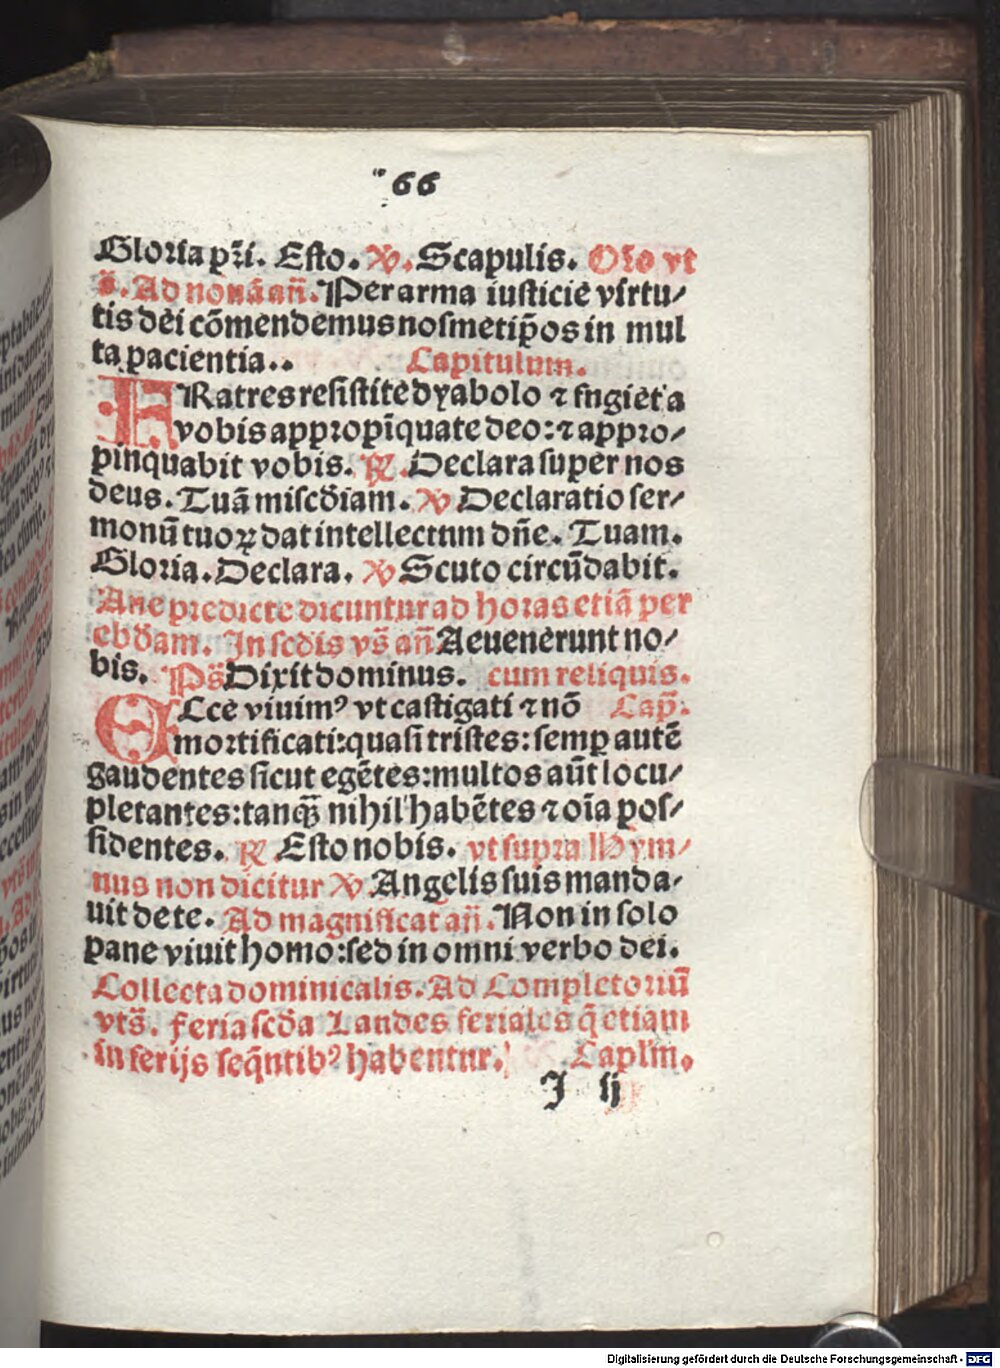 66
Gloria pr̃i. Esto. ℣. Scapulis. Oꝛ̃o vt
s̃. Ad nonã añ. Per arma iusticie virtu⸗
tis dei cõmendemus nosmetip̃os in mul
ta pacientia.. Capitulum.
FRatres resistite dyabolo ⁊ fugiet a
vobis appropĩquate deo: ⁊ appro⸗
pinquabit vobis. ℟. Declara super nos
deus. Tuã miscd̃iam. ℣ Declaratio ser⸗
monũ tuoꝝ dat intellectum dñe. Tuam.
Gloria. Declara. ℣ Scuto circũdabit.
Añe predicte dicuntur ad horas etiã per
ebd̃am. In scd̃is vs̃ añ Aeuenerunt no⸗
bis. Ps̃ Dixit dominus. cum reliquis.
ECce viuimꝰ vt castigati ⁊ nõ Cap̃.
mortificati: quasi tristes: semꝑ autẽ
gaudentes sicut egẽtes: multos aũt locu⸗
pletantes: tanq̃ nihil habẽtes ⁊ oĩa pos⸗
sidentes. ℟ Esto nobis. vt supra Hym⸗
nus non dicitur ℣ Angelis suis manda⸗
uit de te. Ad magnificat añ. Non in solo
pane viuit homo: sed in omni verbo dei.
Collecta dominicalis. Ad Completoriũ
vts̃. feria scd̃a Laudes feriales q̃ etiam
in ferijs seq̃ntibꝰ habentur. Capl̃m.
I ij
Digitalisierung gefördert durch die Deutsche Forschungsgemeinschaft - DFG